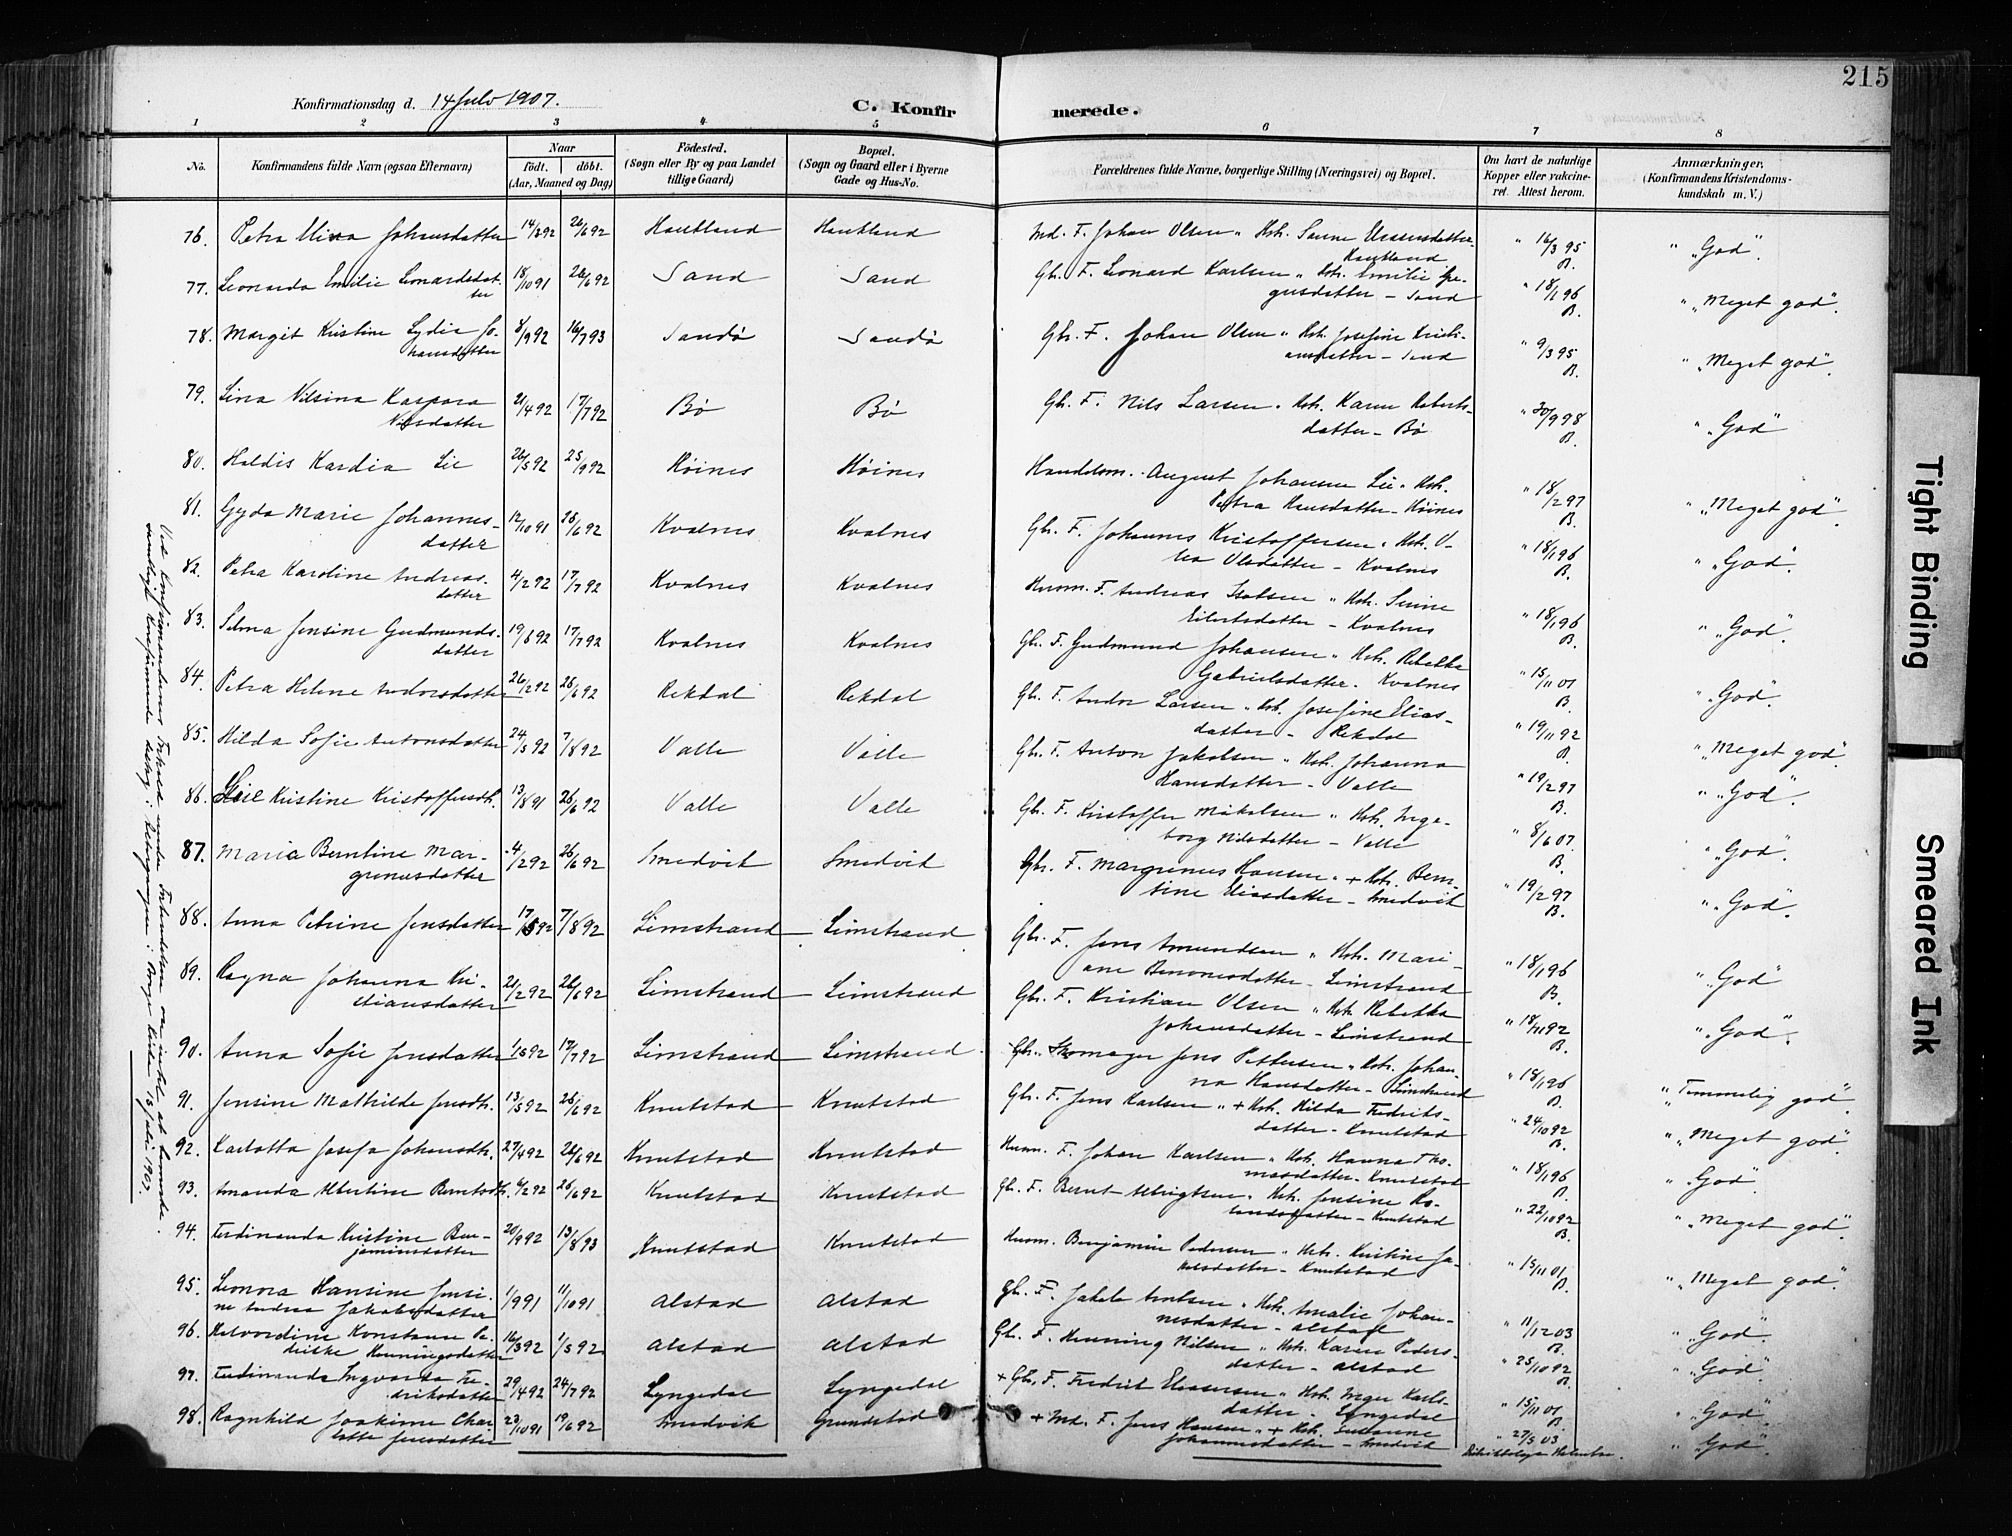 215
Konfirmationsdag d. 14 Juli 1907.
C. Konfirmerede.
1 2 3 4 5 6 7 8
No.
Konfirmandens fulde Navn (ogsaa Efternavn)
Naar
født. døbt.
(Aar, Maaned og Dag)
Fødested.
(Sogn eller By og paa Landet
tillige Gaard)
Bopæl.
(Sogn og Gaard eller i Byerne
Gade og Hus-No.
Forældrenes fulde Navne, borgerlige Stilling (Næringsvei) og Bopæl.
Om havt de naturlige
Kopper eller vakcine-
ret. Attest herom.
Anmærkninger.
(Konfirmandens Kristendoms-
kundskab m. V.)
76. Petra Mina Johansdatter 14/2 92 26/6 92 Haukland Haukland Md. F. Johan Olsen " Hst. Haukland " 16/3 95 B. " "God".
77. Leonarda Emilie Leonardsdatter 18/10 91 26/6 92 Sand Sand Gbr. F. Leonard Karlsen " Hst. Emilie datter – Sand " 18/1 96 B. " "Meget god".
78. Margit Kristine Lydia Johansdatter 8/9 92 16/7 93 Sandø Sandø Gbr. F. Johan Olsen " Hst. Josefine Kristiansdatter – Sand " 9/3 95 B. " "Meget god".
79. Lina Nilsina Kaspara Nilsdatter 21/4 92 17/7 92 Bø Bø Gbr. F. Nils Larsen " Hst. Karen Robertsdatter – Bø " 30/9 98 B. " "God"
80. Haldis Kardia Lie 26/5 92 25/9 92 Høines Høines Handelsm. August Johansen Lie " Hst. Petra Hansdatter – Høines " 18/2 97 B. " "Meget god".
81. Gyda Marie Johannesdatter 12/10 91 26/6 92 Kvalnes Kvalnes Gbr. F. Johannes Kristoffersen " Hst. Olsdatter – Kvalnes " 18/1 96 B. " "God".
82. Petra Karoline Andreasdatter 4/2 92 17/7 92 Kvalnes Kvalnes Husm. F. Andreas " Hst. Eilertsdatter – Kvalnes " 18/1 96 B. " "God".
83. Selma Jensine Gudmundsdatter 19/6 92 17/7 92 Kvalnes Kvalnes Gbr. F. Gudmund Johansen " Hst. Rebekka Gabrielsdatter – Kvalnes " 15/11 01 B. " "God".
84. Petra Helene Andorsdatter 26/2 92 26/6 92 Rekdal Rekdal Gbr. F. Andor Larsen " Hst. Josefine Eliasdatter – Rekdal " 19/11 92 B. " "Meget god".
85. Hilda Sofie Antonsdatter 24/5 92 7/8 92 Valle Valle Gbr. F. Anton Jakobsen " Hst. Johanna Hansdatter – Valle " 19/2 97 B. " "God".
86. Kristine Kristoffersdtr. 13/8 91 26/6 92 Valle Valle Gbr. F. Kristoffer Mikalsen " Hst. Ingeborg Nilsdatter – Valle " 8/6 07. B. " "God".
87. Maria Berntine Margrenusdatter 4/2 92 26/6 92 Smedvik Smedvik Gbr. F. Margrenus Hansen " + Hst. Berntine Eliasdatter – Smedvik " 19/2 97 B. " "God".
88. Anna Petrine Jensdatter 17/5 92 7/8 92 Limstrand Limstrand Gbr. F. Jens Amundsen " Hst. Mariane datter – Limstrand " 18/1 96 B. " "God"
89. Ragna Johanna Kristiansdatter 21/2 92 26/6 92 Limstrand Limstrand Gbr. F. Kristian Olsen " Hst. Rebekka Johansdatter – Limstrand " 18/11 92 B. " "God".
90. Anna Sofie Jensdatter 1/5 92 17/7 92 Limstrand Limstrand Gbr. Skomager Jens Pettersen " Hst. Johanna Hansdatter – Limstrand " 18/1 96 B. " "Temmelig god".
91. Jensine Mathilde Jensdtr. 13/5 92 26/6 92 Knutstad Knutstad Gbr. F. Jens Karlsen " + Hst. Hilda Fredriksdatter – Knutstad " 24/10 92 B. " "Meget god".
92. Karlotta Josefa Johansdtr. 27/4 92 26/6 92 Knutstad Knutstad Husm. F. Johan Karlsen " Hst. Hanna Thomasdatter – Knutstad " 18/1 96 B. " "God".
93. Amanda Albertine Berntsdtr. 6/2 92 26/6 92 Knutstad Knutstad Gbr. F. Bernt Albrigtsen " Hst. Jensine Rolandsdatter – Knutstad " 22/10 92 B. " "Meget god".
94. Ferdinanda Kristine Benjaminsdatter 20/9 92 13/8 93 Knutstad Knutstad Husm. Benjamin Pedersen " Hst. Kristine Jakobsdatter – Knutstad " 15/11 01 B. " "Meget god".
95. Leonora Hansine Jensine Andrea Jakobsdatter 1/9 91 11/10 91 Alstad Alstad Gbr. F. Jakob Antonsen " Hst. Amalie Johannesdatter – Alstad " 11/12 03 B. " "God".
96. Halvordine Konstanse Fredrikke Henningsdatter 16/3 92 1/5 92 Alstad Alstad Gbr. F. Henning Nilsen " Hst. Karen Pedersdatter – Alstad " 25/10 92 B. " "God".
97. Ferdinanda Ingvarda Fredriksdatter 29/4 92 24/7 92 Lyngedal Lyngedal + Gbr. F. Fredrik Eliasersen " Hst. Inger Karlsdatter – Lyngedal " 15/11 01 B. " "God".
98. Ragnhild Joakime Charlotte Jensdatter 23/10 91 19/6 92 Smedvik Grundstad + Md. F. Jens Hansen " + Hst. Susanne Johannesdatter – Smedvik " 27/5 03 " "God".
Ved Konfirmandernes Forhold under Forberedelsen var intet at bemerke.
samtlige Konfirmander deltog i Altergangen i Borge Kirke 15 Juli 1907.
Tight Binding
Smeared Ink